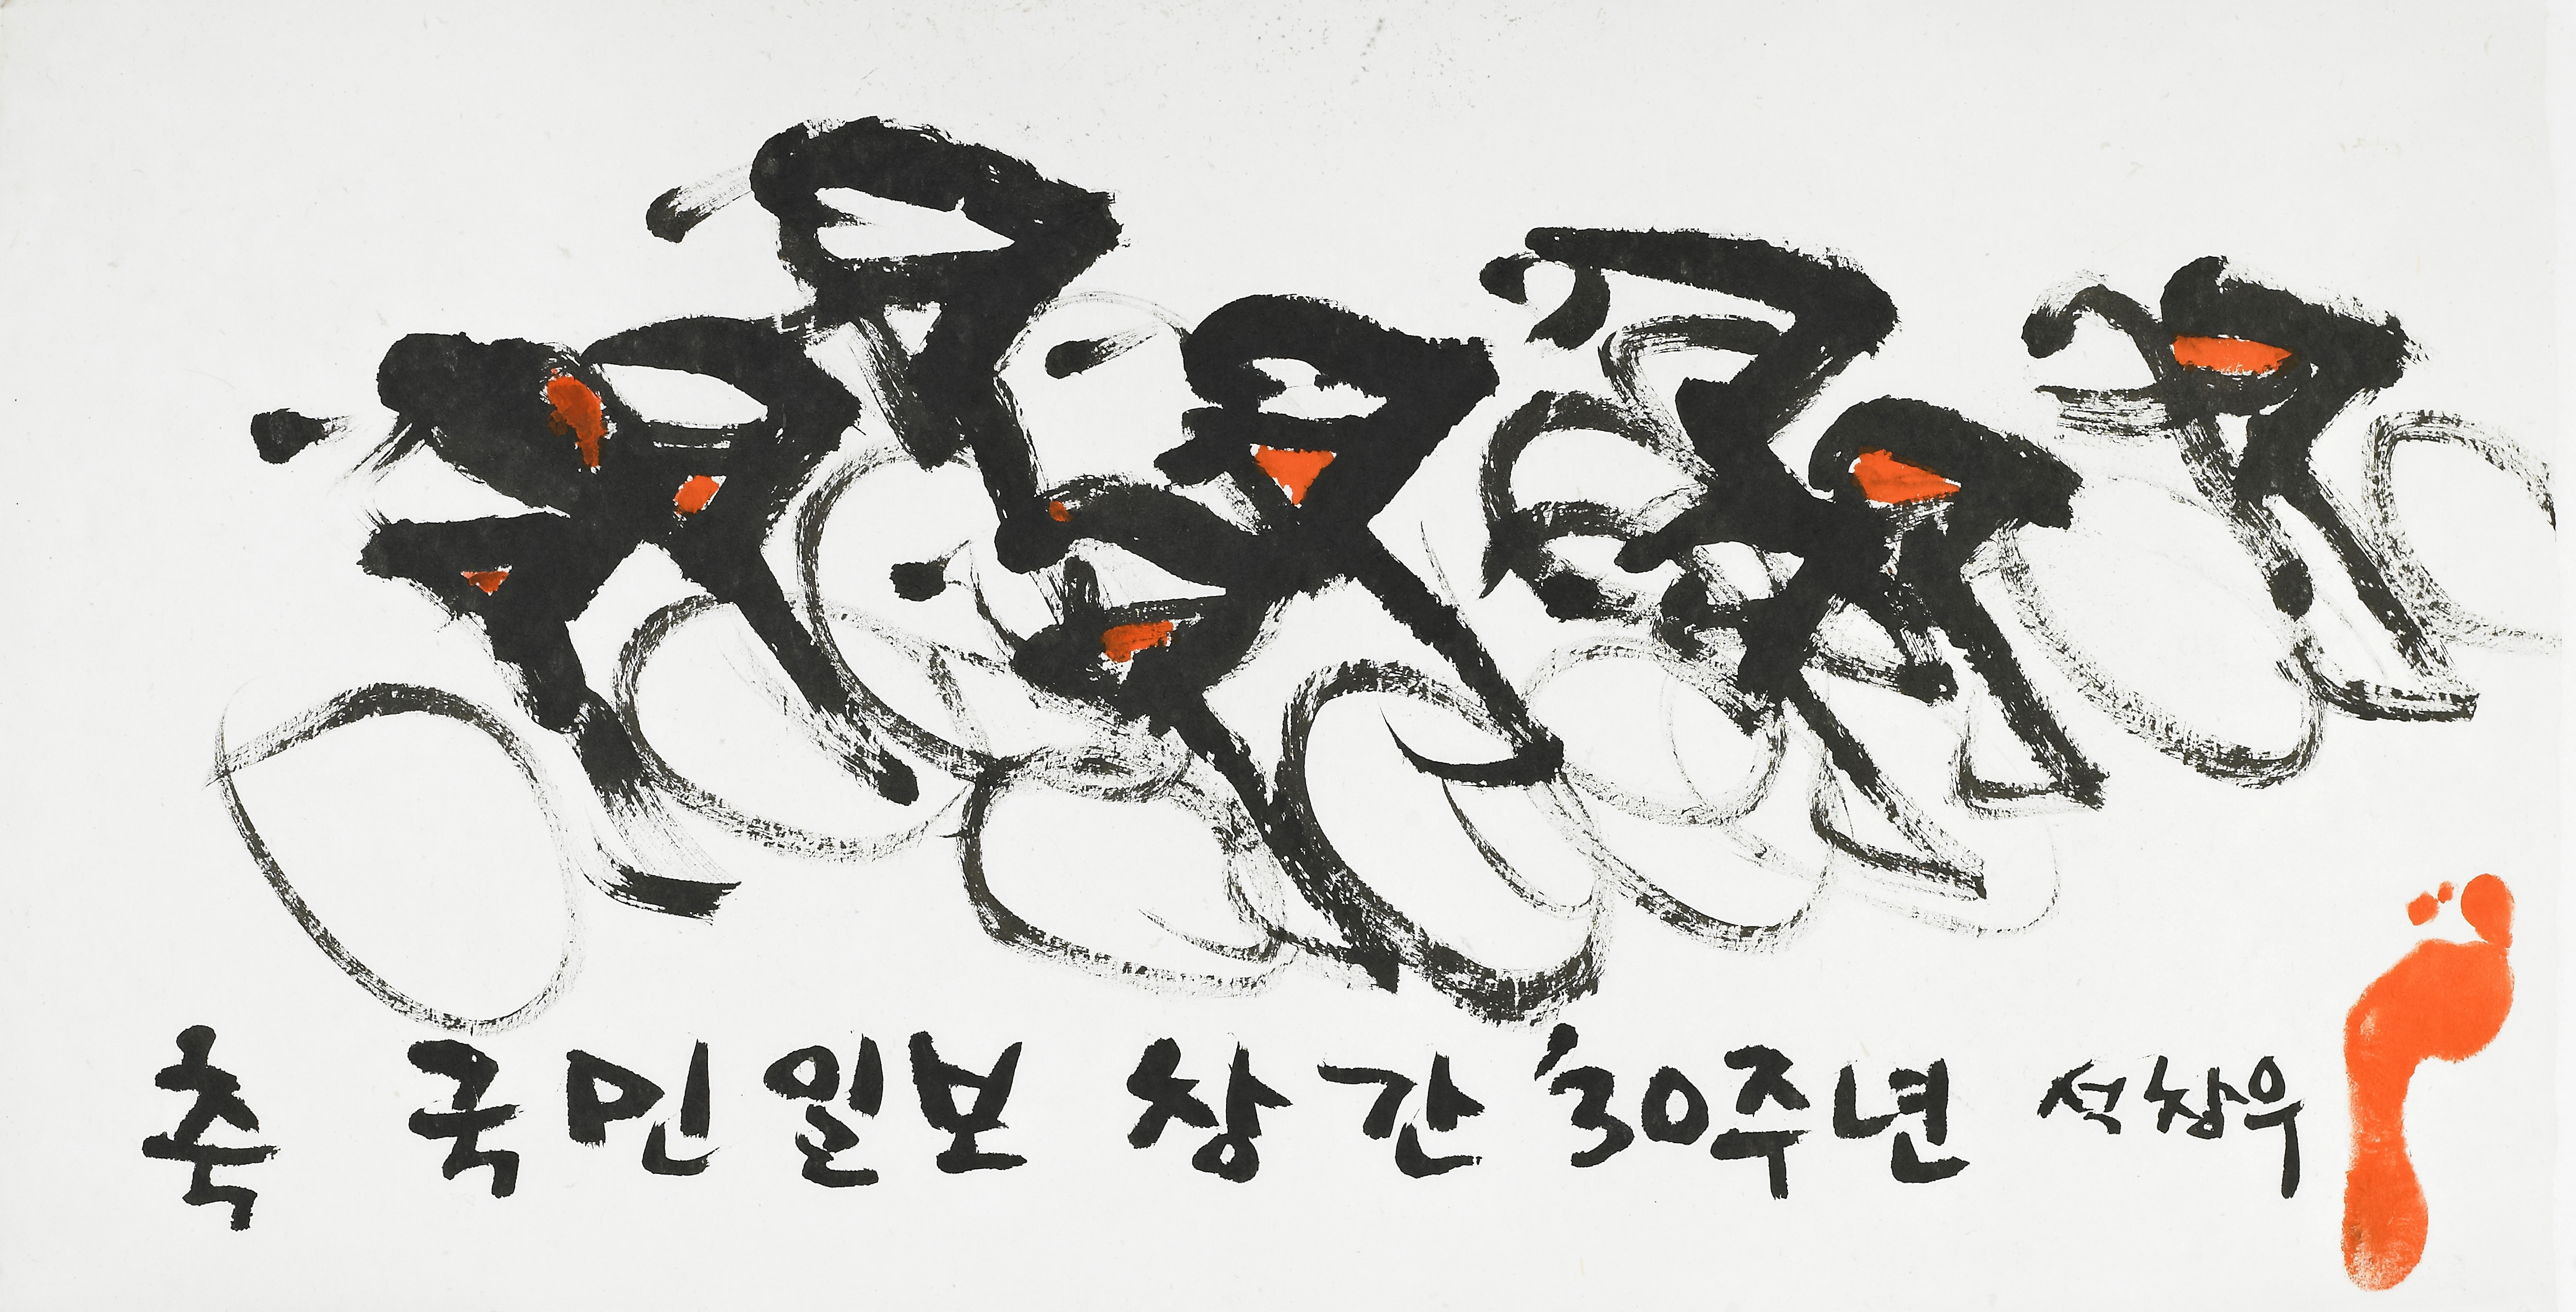 축 국민일보 창간 '30주년 석창우